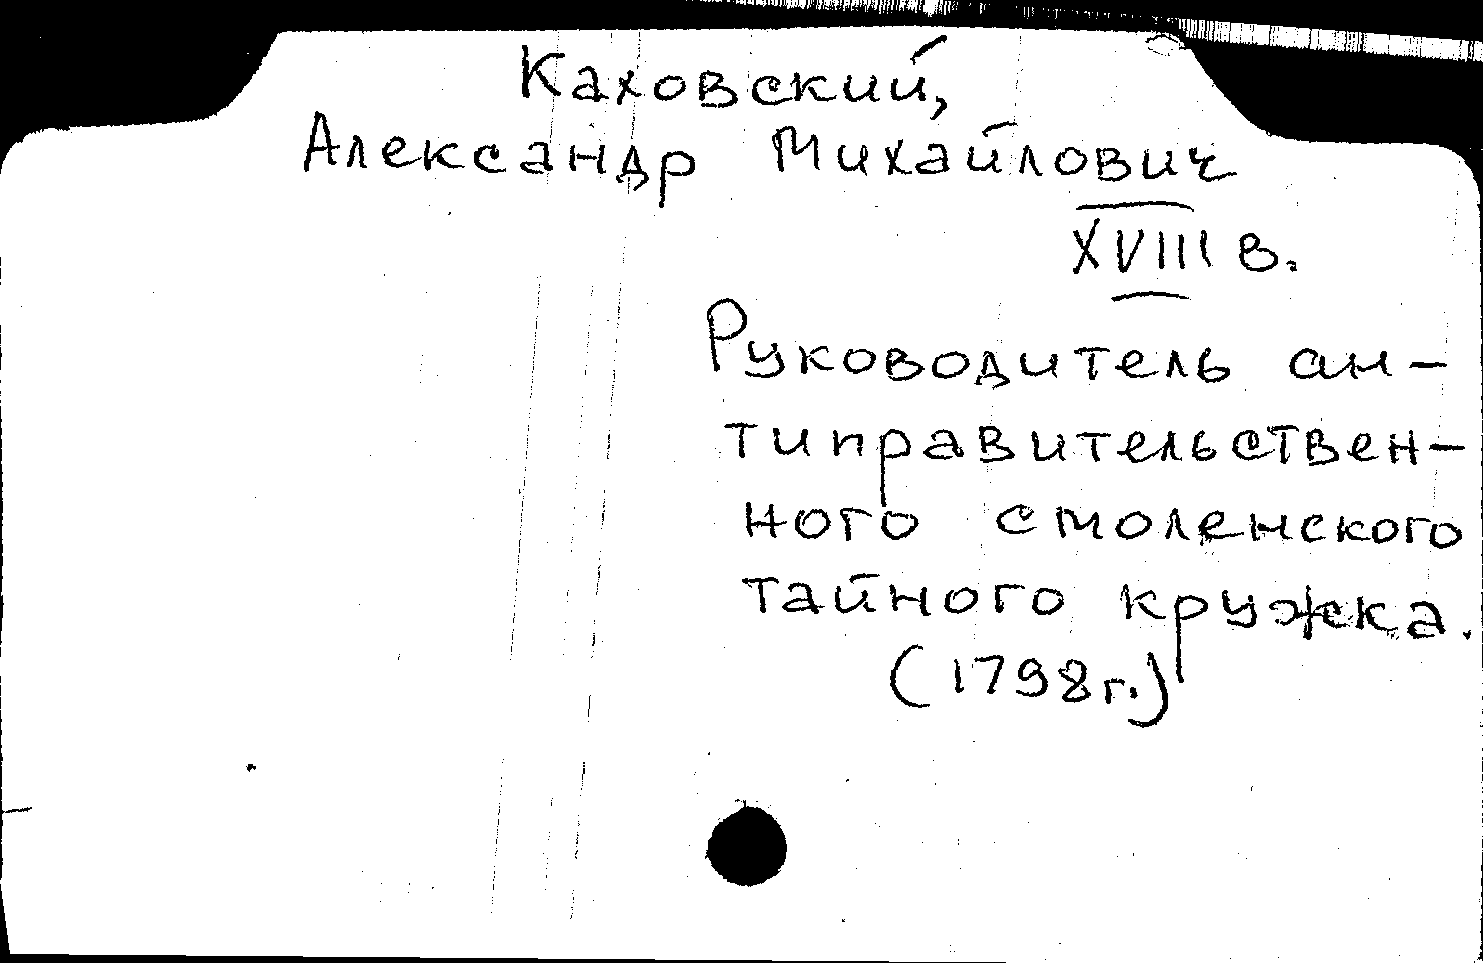 Каховский,
Александр Михайлович
XVIII в.
Руководитель ан-
типравительствен-
ного смоленского
тайного кружка.
(1798г.)